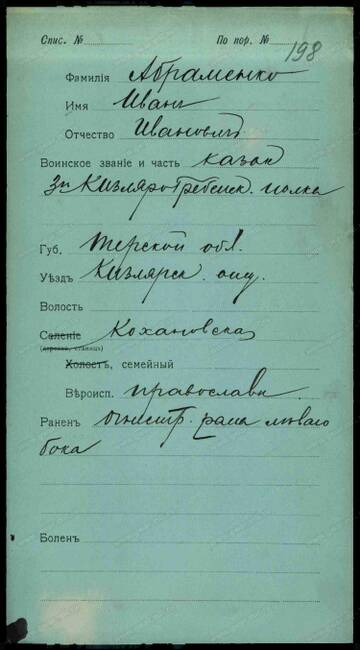 Спис. № По пор. № 198
Фамилія Абраменко
Имя Иванъ
Отчество Ивановъ
Воинское званіе и часть казак
3го Кизляро Гребенск. полка
Губ. Терской обл.
Уѣздъ Кизлярск. отд.
Волость
Селеніе Кохановская
(деревня, станица)
Холостъ, семейный
Вѣроисп. православн.
Раненъ огнестр. рана лѣваго
бока
Боленъ